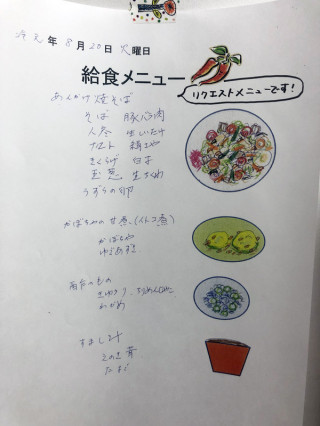 令元年8月20日火曜日
給食メニュー
リクエストメニューです!
あんかけ焼そば
そば 豚バラ肉
人参 生しいたけ
ナルト 絹さや
きくらげ 白才
玉葱 生わかめ
うずらの卵
かぼちゃの甘煮(イトコ煮)
かぼちゃ
ゆであずき
酢のもの
きゅうり
わかめ
すまし汁
えのき茸
たまご